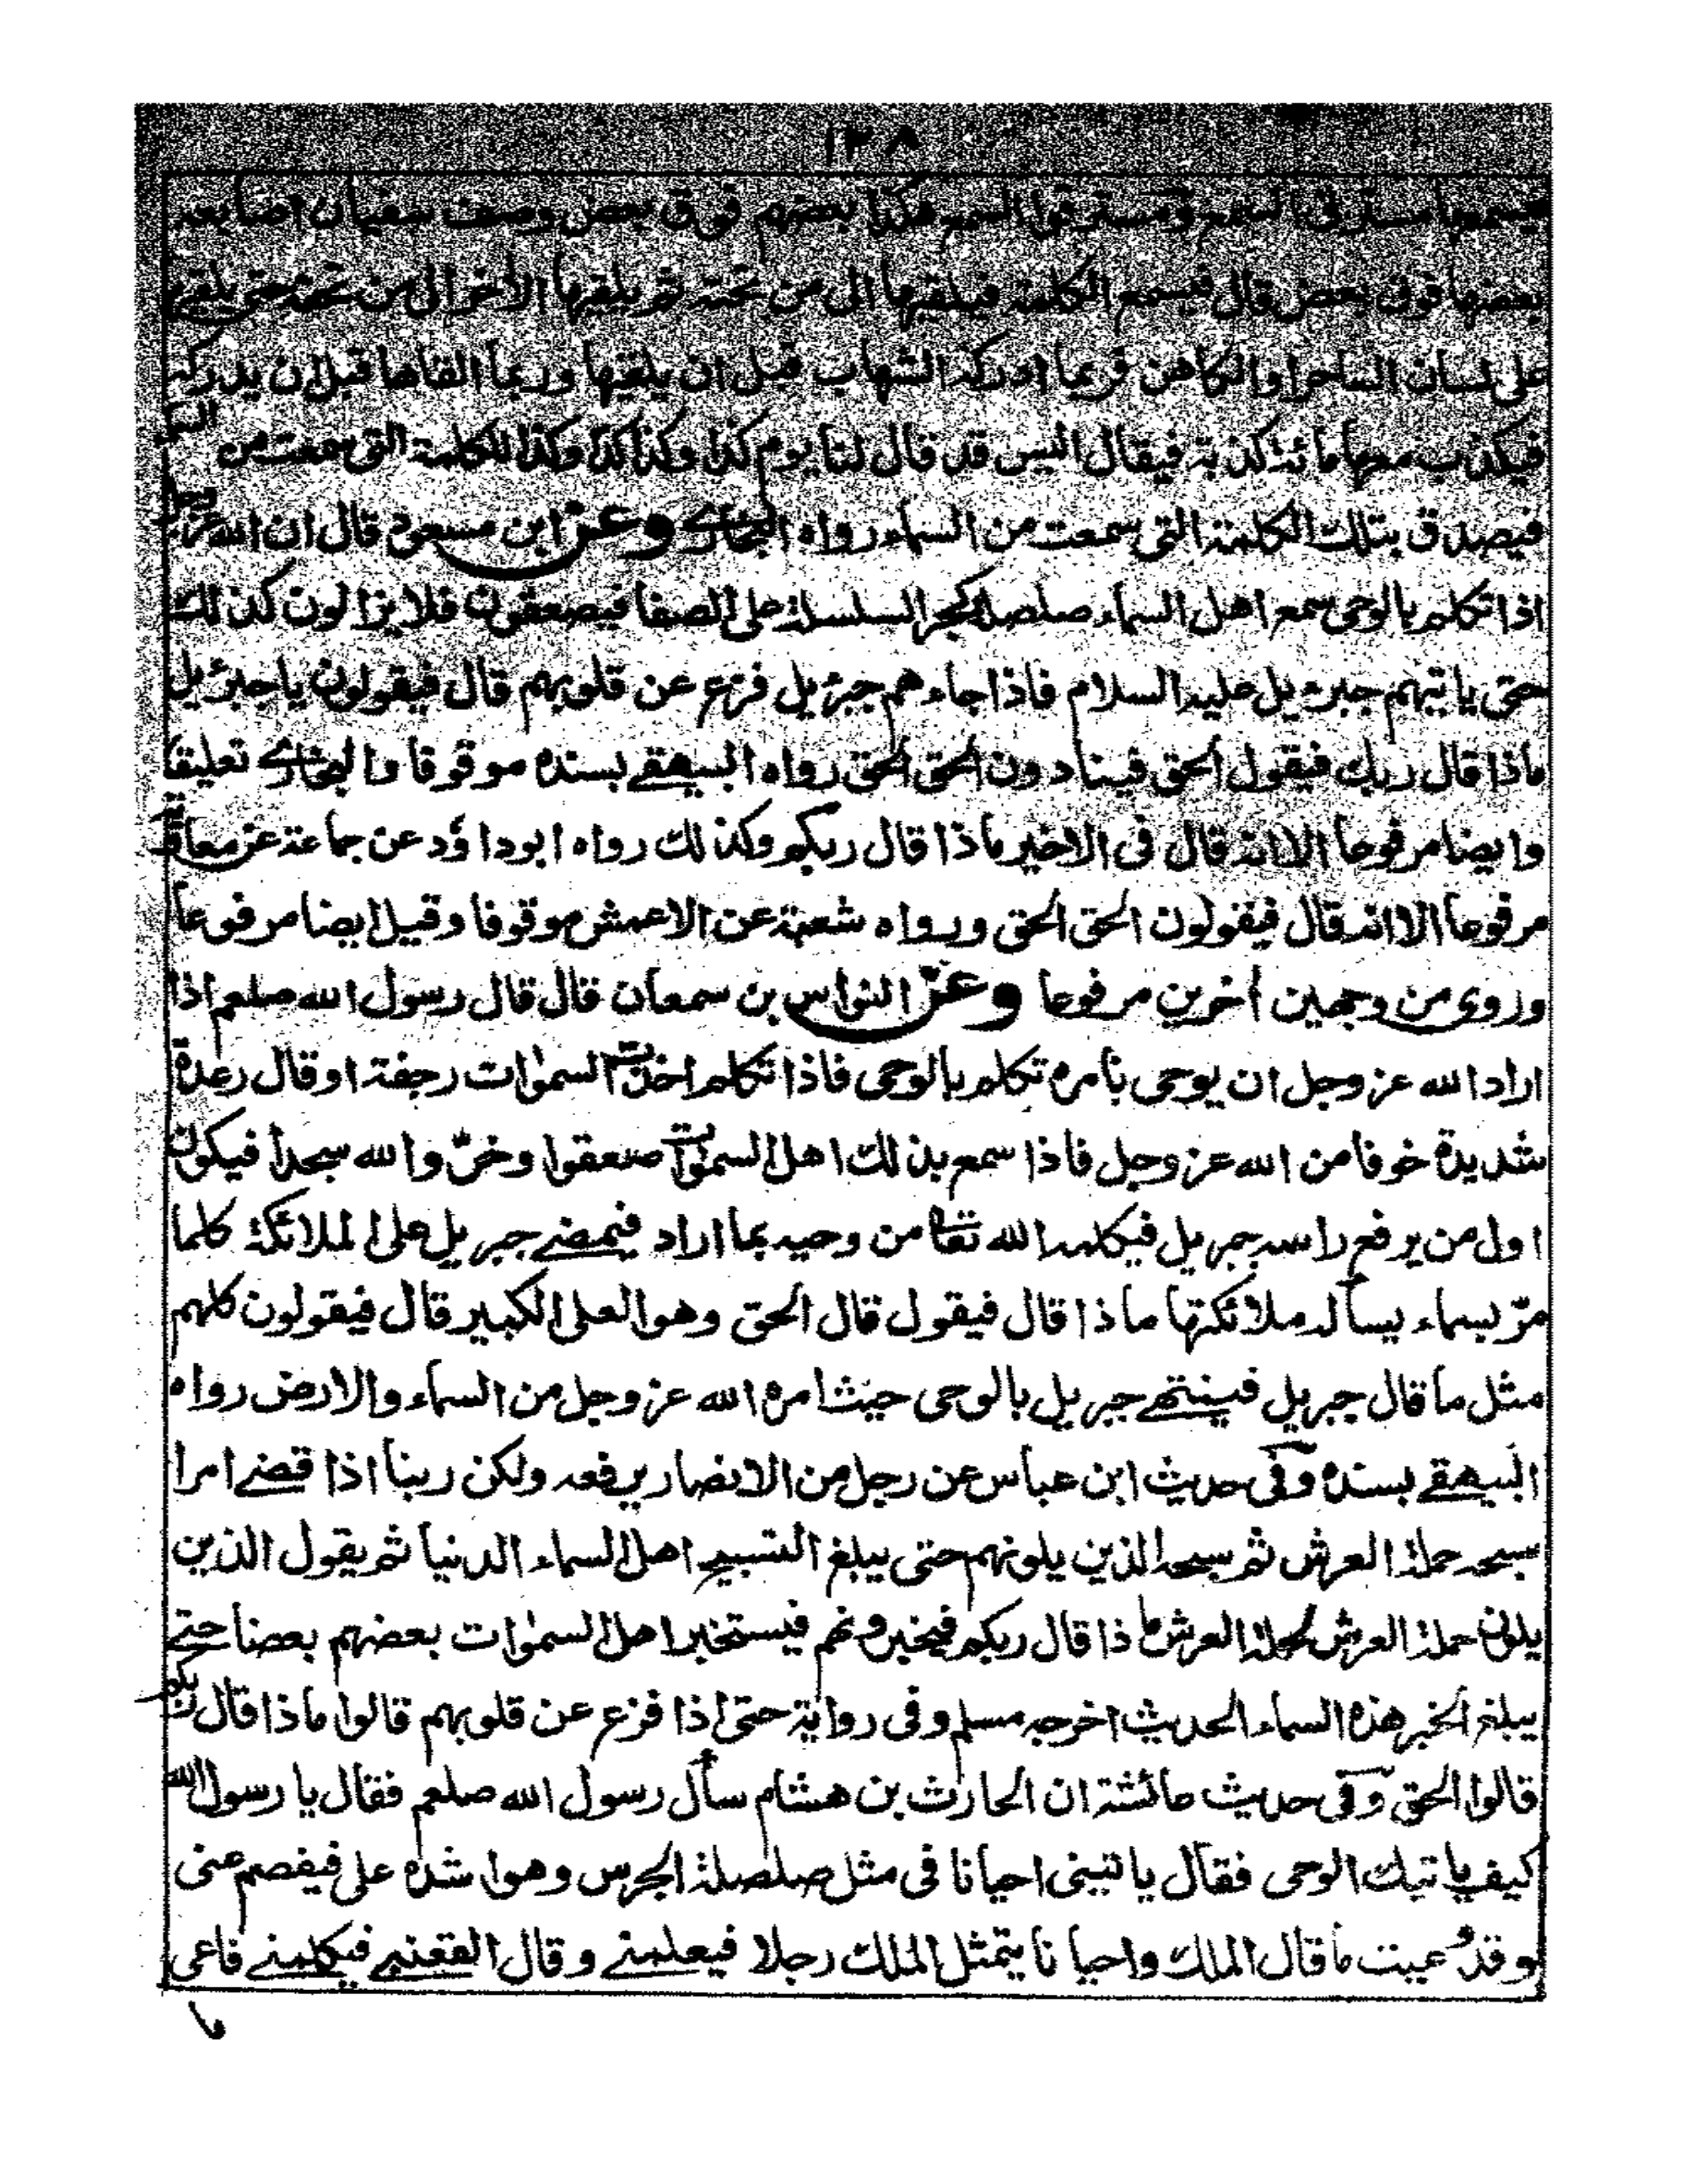 ١٣٨
فيسمعها مسترقى السمع ومسترقوا السمع هكذا بعضهم فوق بعض وصف سفيان اصابعه
بعضها فوق بعض قال فيسمع الكلمة فيلقيها الى من تحته ثم يلقيها الأخر الى من تحته حتى يلقيها
على لسان الساحر او الكاهن فربما ادركه الشهاب قبل ان يلقيها وربما القاها قبل ان يدركه
فيكذب معها مائة كذبة فيقال اليس قد قال لنا يوم كذا وكذا كذا وكذا للكلمة التى سمعت من السماء
فيصدق بتلك الكلمة التى سمعت من السماء رواه البخارى وعن ابن مسعود قال ان الله عز وجل
اذا تكلم بالوحى سمع اهل السماء صلصلة كجر السلسلة على الصفا فيصعقون فلا يزالون كذلك
حتى ياتيهم جبرءيل عليه السلام فاذا جاءهم جبرئيل فزع عن قلوبهم قال فيقولون يا جبرئيل
ماذا قال ربك فيقول الحق فينادون الحق الحق رواه البيهقے بسنده موقوفا والبخارے تعليقا
وايضا مرفوعا الا انه قال فى الاخير ماذا قال ربكم وكذلك رواه ابو داؤد عن جماعة عن معاوية
مرفوعا الا انه قال فيقولون الحق الحق ورواه شعبة عن الاعمش موقوفا وقيل ايضا مرفوعا
وروى من وجهين أخرين مرفوعا وعن النواس بن سمعان قال قال رسول الله صلعم اذا
اراد الله عز وجل ان يوحى بأمره تكلم بالوحى فاذا تكلم اخذت السمٰوات رجفة او قال رعدة
شديدة خوفا من الله عز وجل فاذا سمع بذلك اهل السمٰوات صعقوا وخرّوا لله سجدا فيكون
اول من يرفع راسه جبريل فيكلمه الله تعا من وحيه بما اراد فيمضے جبريل على الملائكة كلما
مرّ بسماء يسأله ملائكتها ماذا قال فيقول قال الحق وهو العلى الكبير قال فيقولون كلهم
مثل ما قال جبريل فينتهے جبريل بالوحى حيث امره الله عز وجل من السماء والارض رواه
البيهقے بسنده وفى حديث ابن عباس عن رجل من الانصار يرفعه ولكن ربنا اذا قضے امرا
سبحه حملة العرش ثم سبحه الذين يلونهم حتى يبلغ التسبيح اهل السماء الدنيا ثم يقول الذين
يلون حملة العرش لحملة العرش ما ذا قال ربكم فيخبرونهم فيستخبر اهل السمٰوات بعضهم بعضا حتے
يبلغ الخبر هذه السماء الحديث اخرجه مسلم وفى رواية حتى اذا فزع عن قلوبهم قالوا ماذا قال ربكم
قالوا الحق وفى حديث عائشة ان الحارث بن هشام سأل رسول الله صلعم فقال يا رسول الله
كيف ياتيك الوحى فقال ياتينى احيانا فى مثل صلصلة الجرس وهو اشده على فيفصم عنى
وقد وعيت ما قال الملك واحيانا يتمثل الملك رجلا فيعلمنے وقال القعنبے فيكلمنے فاعى
ما